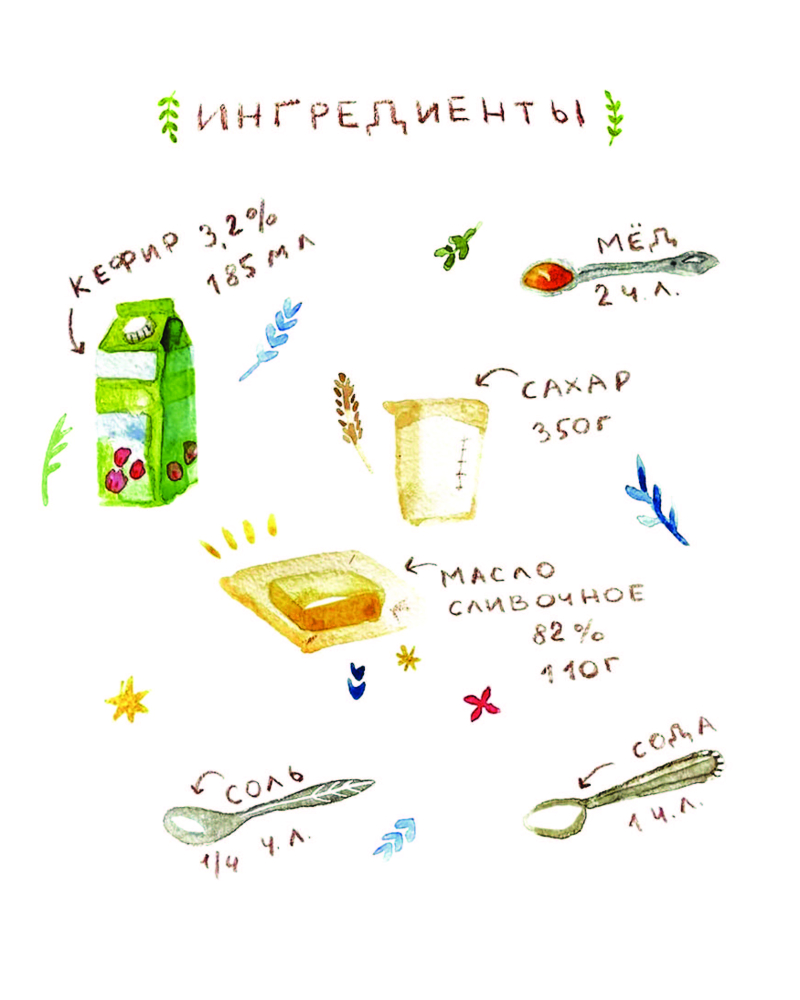 ИНГРЕДИЕНТЫ
КЕФИР 3,2%
185 МЛ
МЁД
2 Ч.Л.
САХАР
350Г
МАСЛО
СЛИВОЧНОЕ
82%
110Г
СОЛЬ
1/4 Ч.Л.
СОДА
1 Ч.Л.